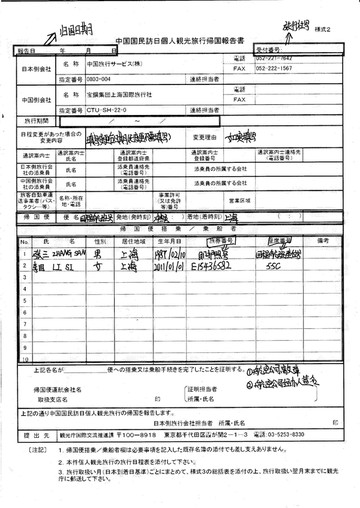 归国日期
旅行社编号
様式2
中国国民訪日個人観光旅行帰国報告書
報告日 年 月 日 受付番号
日本側会社 名 称 中国旅行サービス(株) 電話 052-221-7842
FAX 052-222-1567
指定番号 0803-004 連絡担当者
中国側会社 名 称 宝鋼集団上海国際旅行社 電話
FAX
指定番号 CTU-SH-22-0 連絡担当者
旅行期間
日程変更があった場合の変更内容 変更理由
通訳案内士 通訳案内士氏名 通訳案内士登録都道府県 通訳案内士 通訳案内士連絡先(電話番号)
日本側旅行会社の添乗員 添乗員氏名 添乗員連絡先(電話番号) 添乗員の所属する会社
中国側旅行会社の添乗員 添乗員氏名 添乗員連絡先(電話番号) 添乗員の所属する会社
名称・所在地・電話 事業許可(又は免許等)番号 営業区域
帰国便 便名 発地(発時刻) 着地(着時刻) 上海
帰 国 便 搭 乗 / 乗 船 者
No. 氏 名 性別 居住地域 生年月日 旅券番号 座席番号 備考
1 张三 ZHANG SAN 男 上海 1987/02/10
2 李四 LI SI 女 上海 2011/01/01 E15436582 55C
3
4
5
6
7
8
9
10
上記各名が 便への搭乗又は乗船手続きを完了したことを証明する。
帰国便運航会社名 証明担当者
取扱支店名 印 所属・氏名 印
上記の通り中国国民訪日個人観光旅行の帰国を報告します。
日本側旅行会社担当者 所属・氏名 印
提 出 先 観光庁国際交流推進課 〒100-8918 東京都千代田区霞が関2-1-3 電話:03-5253-8330
〔注記〕 1. 帰国便搭乗/乗船者欄は必要事項を記入した既存名簿の添付でも差し支えありません。
2. 本件個人観光旅行の旅行日程表を添付して下さい。
3. 旅行取扱い月(日本到着日基準)ごとにまとめて、様式3の総括表を添付の上、旅行取扱い翌月末までに観光庁に郵送して下さい。